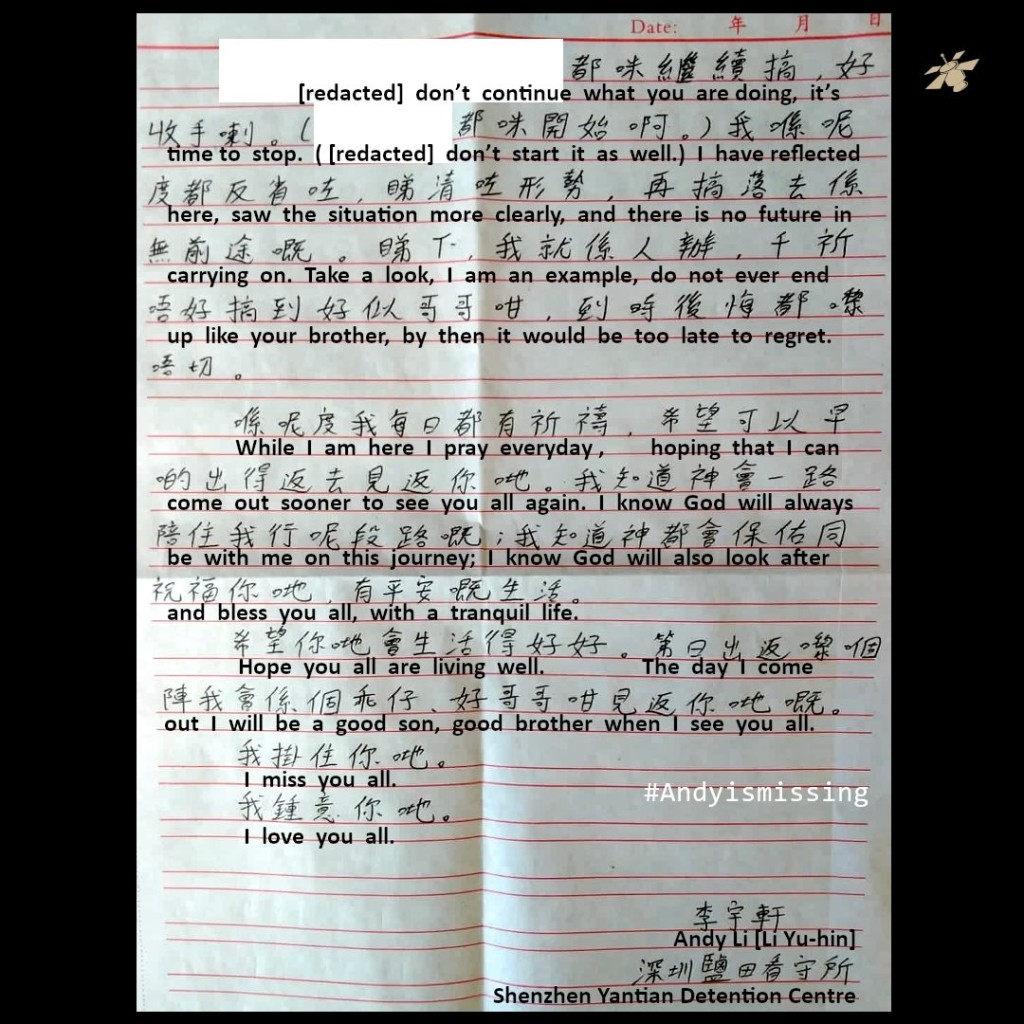 Date: 年 月 日
都咪繼續搞，好
[redacted] don't continue what you are doing, it's
收手喇。( 都咪開始啊。) 我喺呢
time to stop. ( [redacted] don't start it as well.) I have reflected
度都反省咗，睇清咗形勢，再搞落去係
here, saw the situation more clearly, and there is no future in
無前途嘅。睇下，我就係人辦，千祈
carrying on. Take a look, I am an example, do not ever end
唔好搞到好似哥哥咁，到時後悔都嚟
up like your brother, by then it would be too late to regret.
唔切。
喺呢度我每日都有祈禱，希望可以早
While I am here I pray everyday, hoping that I can
啲出得返去見返你哋。我知道神會一路
come out sooner to see you all again. I know God will always
陪住我行呢段路嘅；我知道神都會保佑同
be with me on this journey; I know God will also look after
祝福你哋，有平安嘅生活。
and bless you all, with a tranquil life.
希望你哋會生活得好好。第日出返嚟個
Hope you all are living well. The day I come
陣我會係個乖仔、好哥哥咁見返你哋嘅。
out I will be a good son, good brother when I see you all.
我掛住你哋。
I miss you all.
#Andyismissing
我鍾意你哋。
I love you all.
李宇軒
Andy Li [Li Yu-hin]
深圳鹽田看守所
Shenzhen Yantian Detention Centre